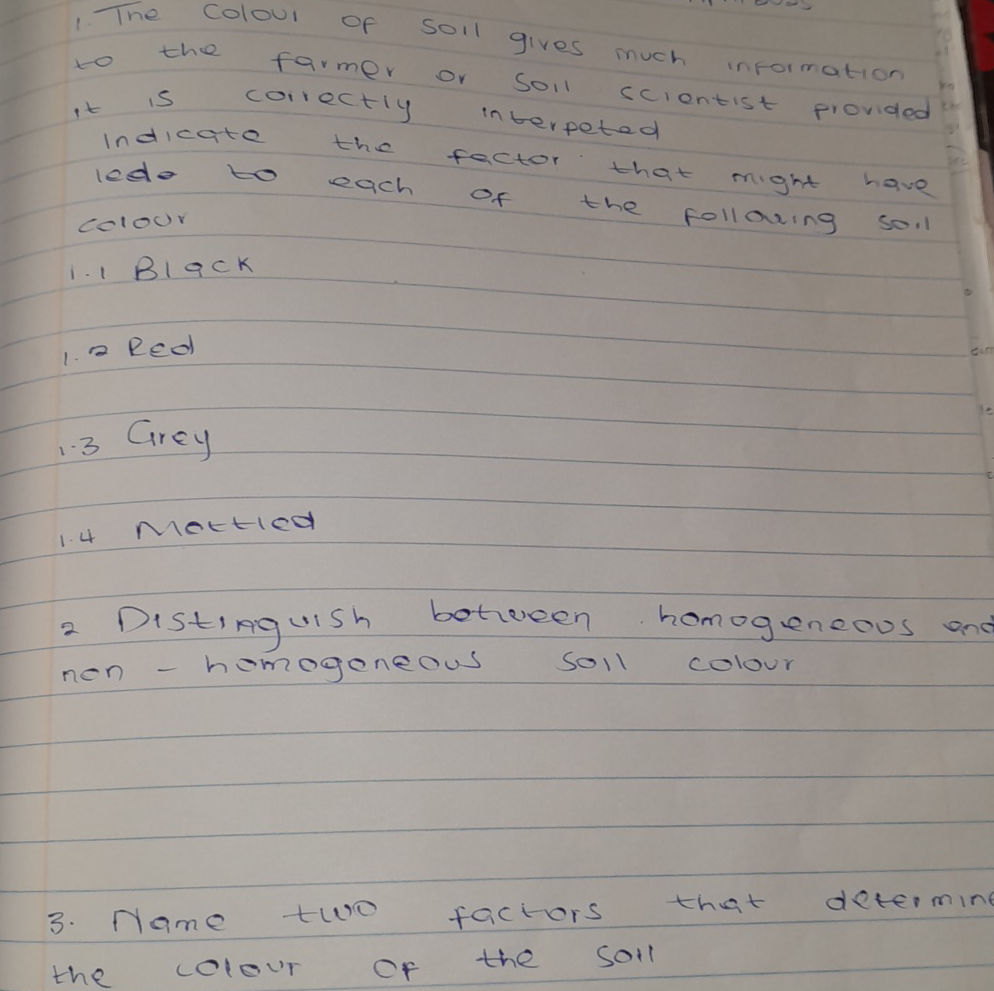 1. The colour of soil gives much information
to the farmer or soil scientist provided
it is correctly interpeted
Indicate the factor that might have
lede to each of the following soil
colour
1.1 Black
1.2 Red
1.3 Grey
1.4 Mottled
2 Distinguish between homogeneous and
non - homogeneous soil colour
3. Name two factors that determine
the colour of the soil